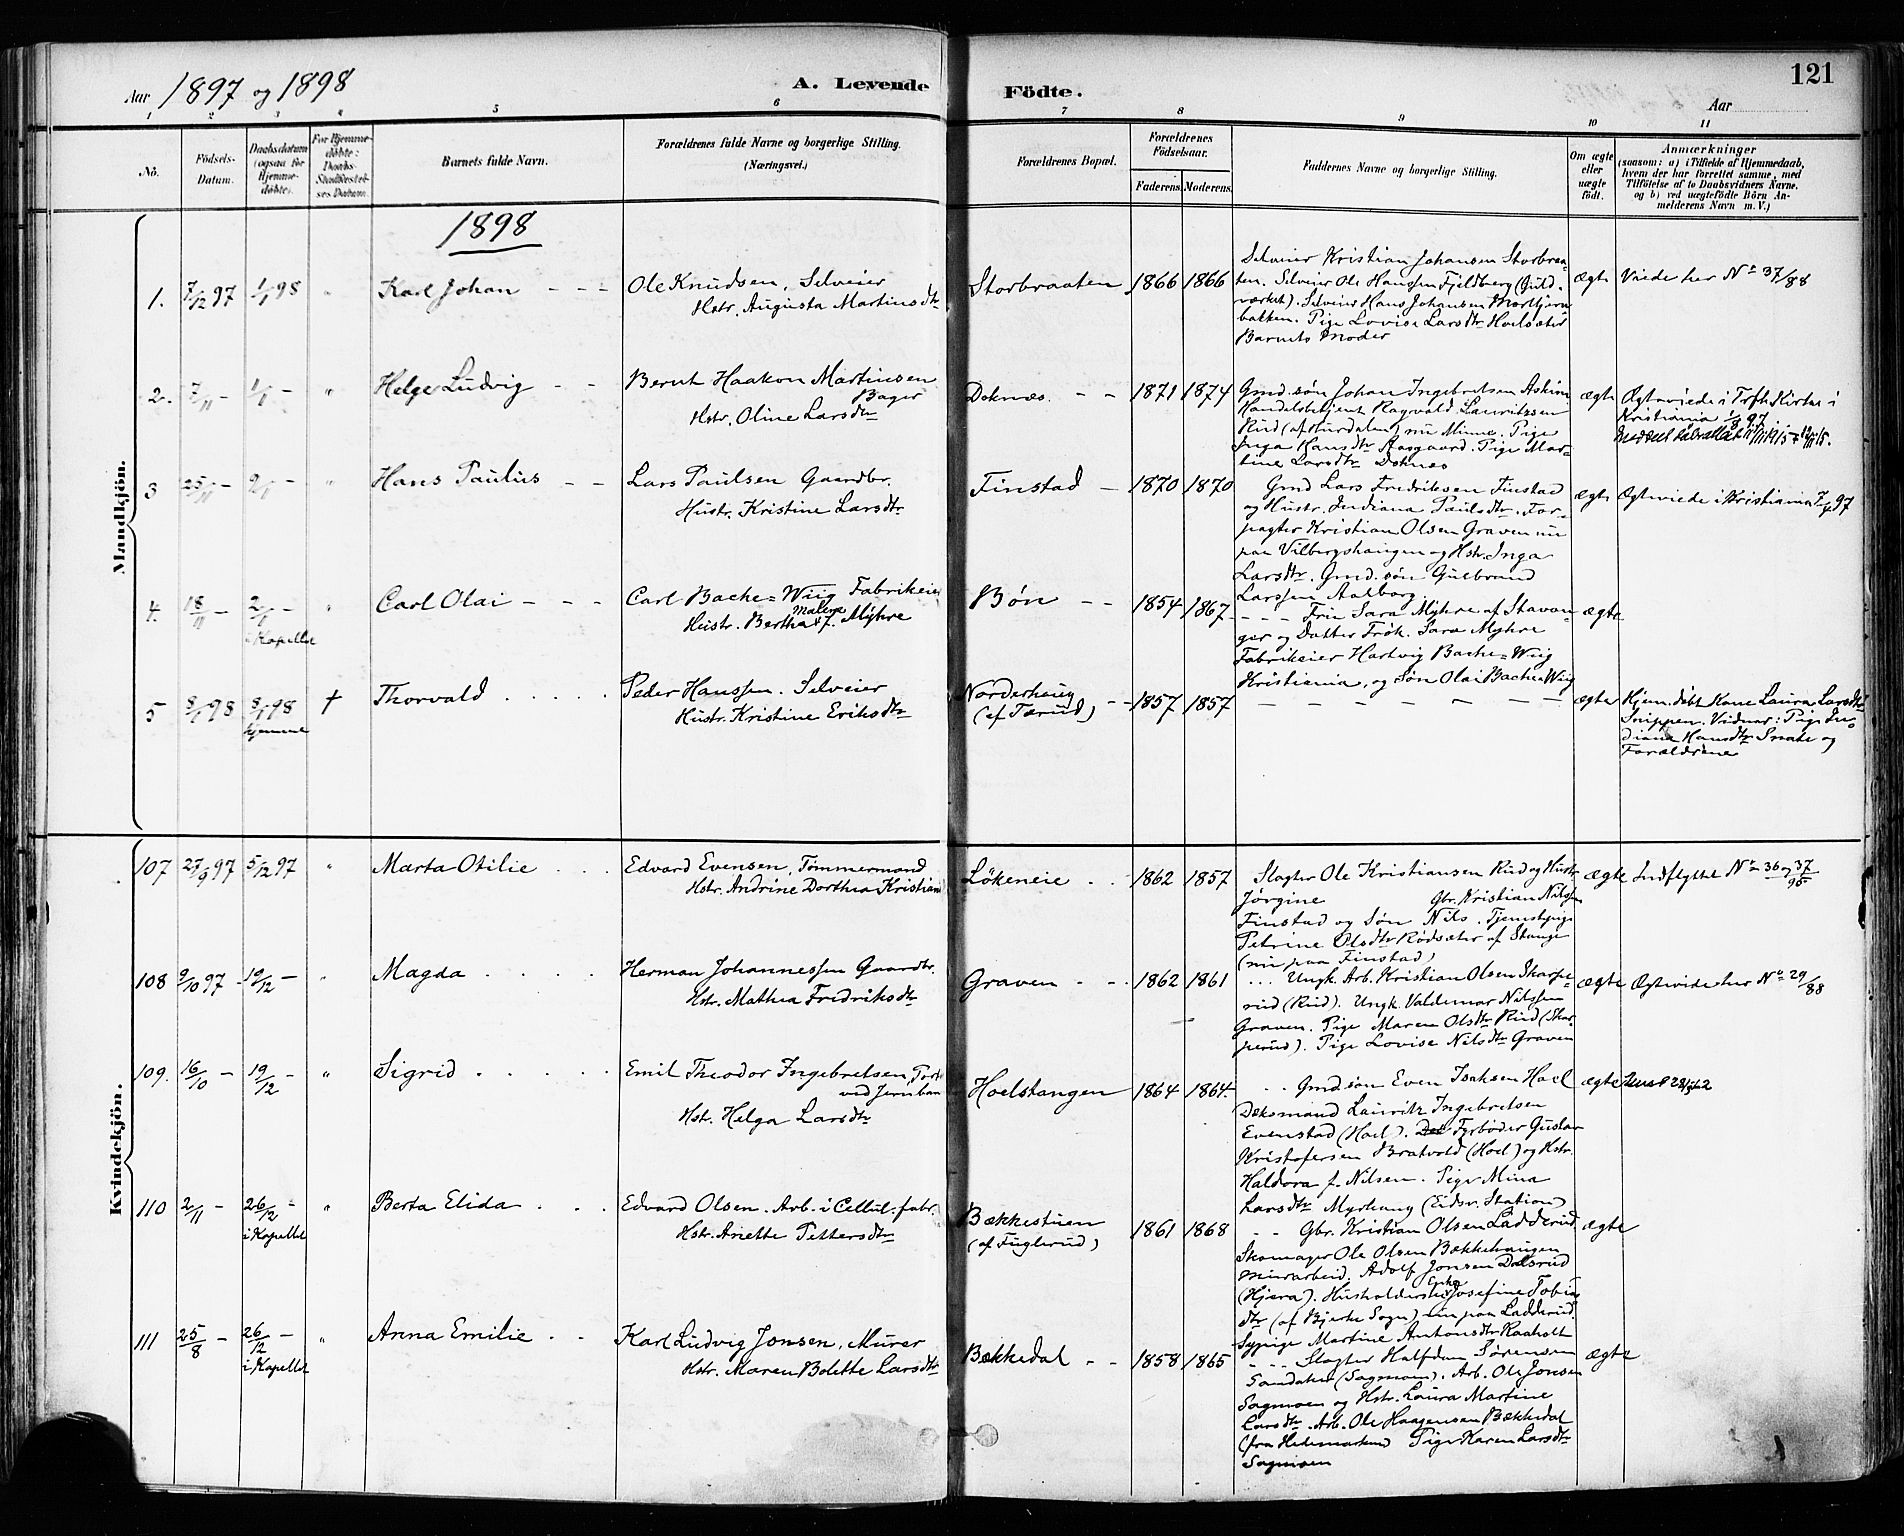 Aar 1897 og 1898
A. Levende
Födte.
Aar
121
1 2 3 4 5 6 7 8 9 10 11
No.
Födsels-Datum.
Daabsdatum (ogsaa for Hjemmedöbte).
For Hjemmedöbte: Daabs Stadfæstelses Datum.
Barnets fulde Navn.
Forældrenes fulde Navne og borgerlige Stilling. (Næringsvei.)
Forældrenes Bopæl.
Forældrenes Födselsaar.
Faderens. Moderens.
Faddernes Navne og borgerlige Stilling.
Om ægte eller uægte födt.
Anmærkninger
(saasom: a) i Tilfælde af Hjemmedaab,
hvem der har forrettet samme, med
Tilföielse af to Daabsvidners Navne.
og b) ved uægtefödte Börn An-
melderens Navn m. V.)
1898
Mandkjön.
1. 7/12 97 1/1 98 " Karl Johan
Ole Knudsen, Selveier
Hstr. Augusta Martinsdtr
Storbraaten 1866 1866
Selveier Kristian Johansen Storbraa-
ten. Selveier Ole Hanssen Fjeldberg (Guld-
værket). Selveier Hans Johansen
bakken. Pige Lovise Larsdtr Hoelsæter
Barnets Moder
ægte Viede her No 37/88
2. 7/11 - 1/1 - " Helge Ludvig
Bernt Haakon Martinsen
Bager
Hstr. Oline Larsdtr
Doknæs 1871 1874
Gmd.søn Johan Ingebretsen Askim
Handelsbetjent Ragvald Lauritzsen
Rud (af Hurdalen) nu Minne. Pige
Inga Hansdtr Aasgaard. Pige Mar-
tine Larsdtr Doknæs
ægte Ægteviede i Trfk Kirke i
Kristiania 1/8 97
3 25/11 - 2/1 - " Hans Paulus
Lars Paulsen Gaardbr.
Hustr. Kristine Larsdtr
Finstad 1870 1870
Gmd Lars Fredriksen Finstad
og Hustr. Indiana Paulsdtr. For-
pagter Kristian Olsen Graven nu
paa Vilbergshaugen og Hstr. Inga
Larsdtr. Gmd.søn Gulbrand
Larssen Aalborg.
ægte Ægteviede i Kristiania 97
4. 18/11 - 2/1 - i Kapellet " Carl Olai
Carl Bache=Wiig Fabrikeier
Hustr. Bertha Malene f. Myhre
Bøn 1854 1867
Fru Sara Myhre af Stavan-
ger og Datter Frøk. Sara Myhre
Fabrikeier Hartvig Bache=Wiig
Kristiania, og Søn Olai Bache Wiig
ægte
5 8/1 98 8/1 98 hjemme † Thorvald
Peder Hanssen. Selveier
Hustr. Kristine Eriksdtr
Norderhaug
(af Tærud) 1857 1857
ægte Hjem.døbt Kone Laura Larsdtr
Snippen. Vidner: Pige In-
diana Hansdtr Snake og
Forældrene
Kvindekjön.
107 27/9 97 5/12 97 " Marta Otilie
Edvard Evensen, Tømmermand
Hstr. Andrine Dorthea Kristians
Løkeneie 1862 1857
Slagter Ole Kristiansen Rud og Hustr.
Jørgine Gbr. Kristian Nilssen
Finstad og Søn Nils. Tjenestepige
Petrine Olsdtr Rødsæter af Stange
(nu paa Finstad)
ægte Indflyttet No 36 og 37/95
108 9/10 97 19/12 - " Magda
Herman Johannessen Gaardbr.
Hstr. Mathea Fredriksdtr
Graven 1862 1861
Ungk. Arb. Kristian Olsen Skarpe-
rud (Rud). Ungk. Valdemar Nilssen
Graven. Pige Maren Olsdtr Rud (Skar-
perud). Pige Lovise Nilsdtr Graven
ægte Ægteviede her No 29/88
109. 16/10 - 19/12 - " Sigrid
Emil Theodor Ingebretsen,
ved Jernban
Hstr. Helga Larsdtr
Hoelstangen 1864 1864.
Gmd.søn Even Isaksen Hoel
Dæksmand Lauritz Ingebretsen
Evenstad (Hoel). Fyrbøder Gustav
Kristofersen Bratvold (Hoel) og Hstr.
Haldora f. Nilsen. Pige Mina
Larsdtr Myrhaug (Eidsv. Station)
ægte
110 2/11 - 26/12 - i Kapellet " Berta Elida
Edvard Olsen. Arb. i Cellul.fabr.
Hstr. Anette Pettersdtr
Bækkestuen
(af Fuglerud) 1861 1868
Gbr. Kristian Olsen Ladderud.
Skomager Ole Olsen Bækkehaugen
Murarbeid. Adolf Jonsen Dalsrud
(Hjera). Husholderske Josefine Tobias
dtr (af Bjerke Sogn) nu paa Ladderud.
Sypige Martine Antonsdtr Raaholt
ægte
111 25/8 - 26/12 - i Kapellet " Anna Emilie
Karl Ludvig Jonsen, Murer
Hstr. Maren Bolette Larsdtr
Bækkedal 1858 1865
Slagter Halfdan Sørensen
Sandaker (Sagmoen). Arb. Ole Jonsen
Sagmoen og Hstr. Laura Martine
Larsdtr. Arb. Ole Haagensen Bækkedal
(fra Hedemarken) Pige Karen Larsdtr
Sagmoen
ægte